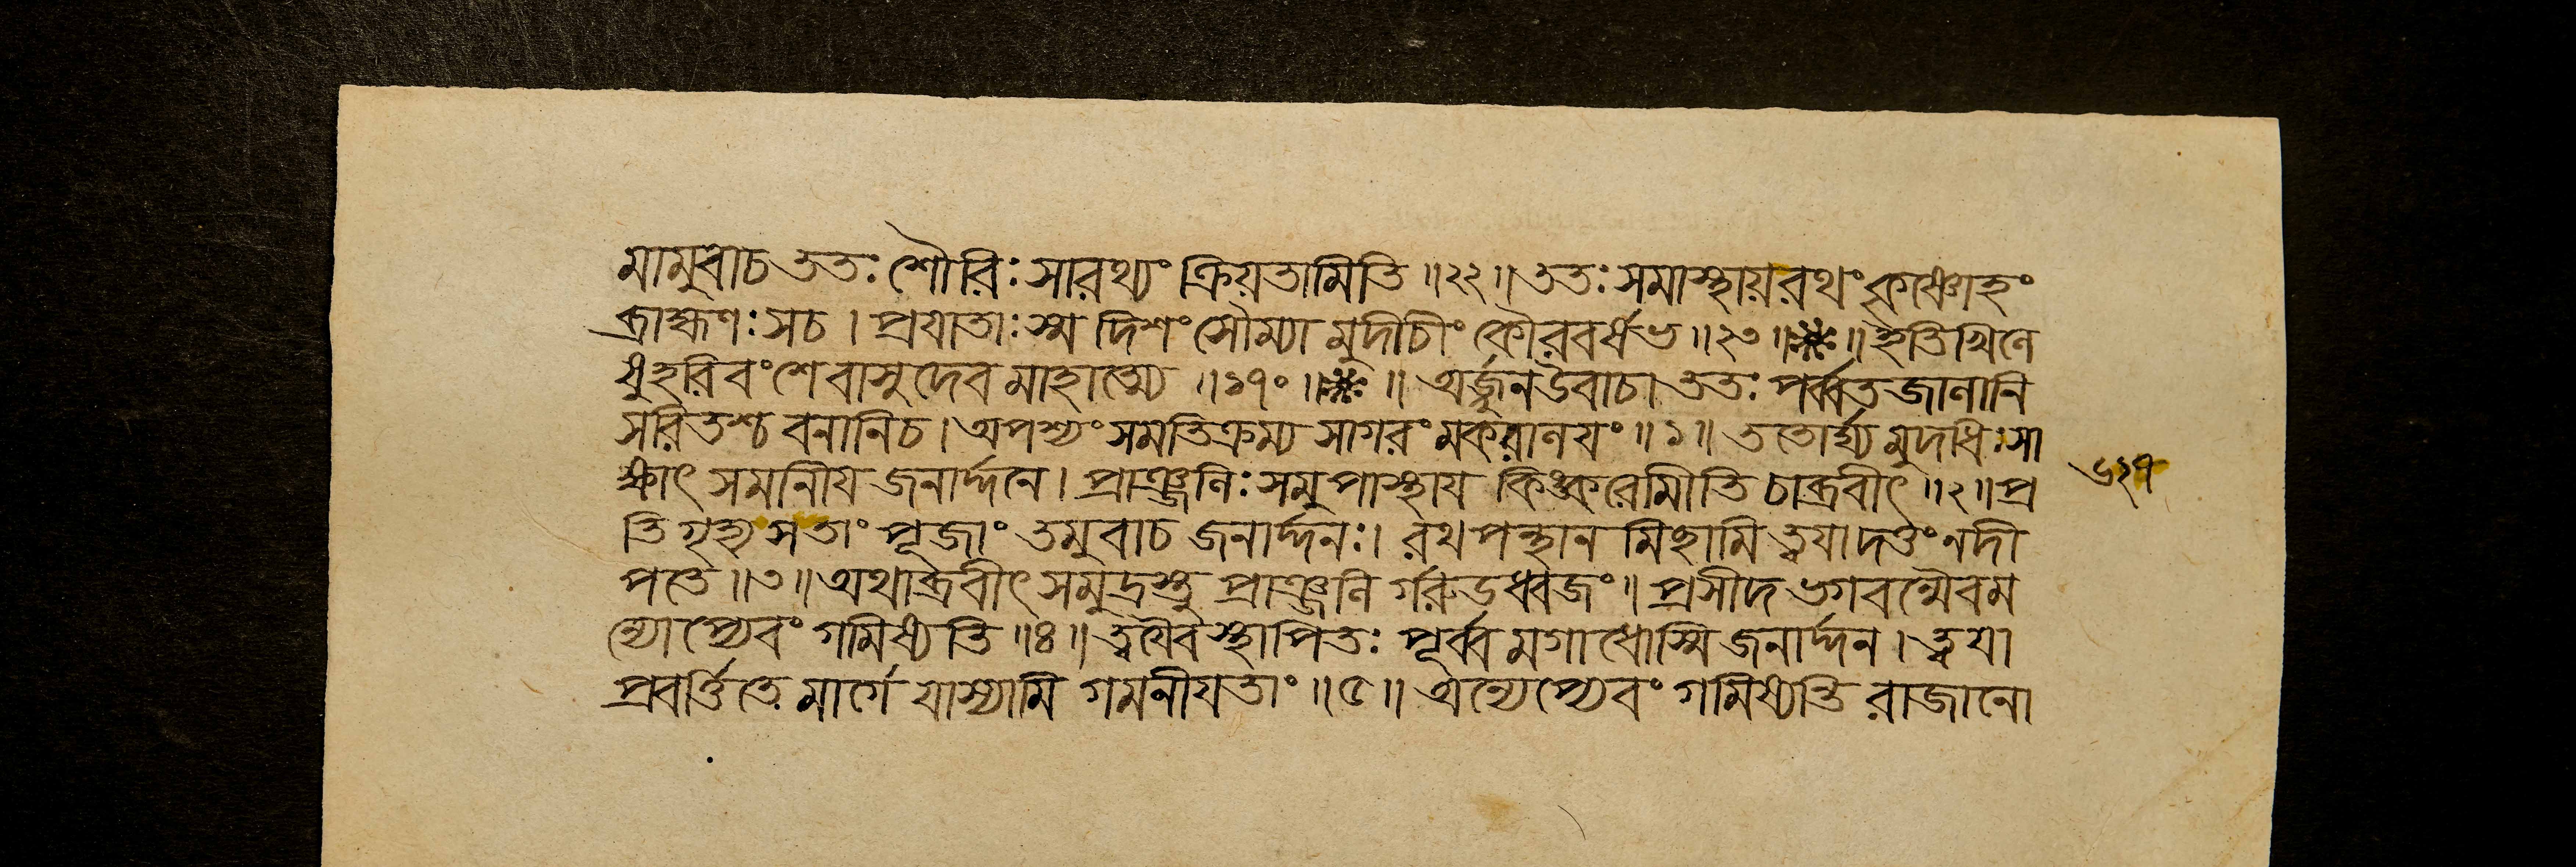 মামুবাচ ততঃ শৌরিঃ সারথ্যং ক্রিয়তামিতি ॥২২॥ ততঃ সমাস্থায় রথং কৃষ্ণোহং
ব্রাহ্মণঃ সচ । প্রযাতাঃ স্ম দিশং সৌম্যা মুদীচীং কৌরবর্ষভ ॥২৩॥※॥ ইতি খিলে
ষু হরিবংশে বাসুদেব মাহাত্ম্যে ॥১৭০॥※॥ অর্জ্জুন উবাচ। ততঃ পর্ব্বত জালানি
সরিতশ্চ বনানি চ। অপশ্যং সমতিক্রম্য সাগরং মকরালযং ॥১॥ ততোর্ঘ্য মুদধিঃ সা
ক্ষাৎ সমানীয জনার্দ্দনে। প্রাঞ্জলিঃ সমুপাস্থায কিঙ্করোমীতি চাব্রবীৎ ॥২॥ প্র
৬২৭
তিগৃহ্য স তাং পূজাং তমুবাচ জনার্দ্দনঃ। রথ পন্থান মিছামি ত্বযা দত্তং নদী
পতে ॥৩॥ অথাব্রবীৎ সমুদ্রস্তু প্রাঞ্জলি র্গরুডধ্বজং॥ প্রসীদ ভগবন্মৈবম
ন্যোপ্যেবং গমিষ্যতি ॥৪॥ ত্বযৈব স্থাপিতঃ পূর্ব্ব মগাধোস্মি জনার্দ্দন। ত্বযা
প্রবর্ত্তিতে মার্গে যাস্যামি গমনীযতাং ॥৫॥ অন্যেপ্যেবং গমিষ্যন্তি রাজানো